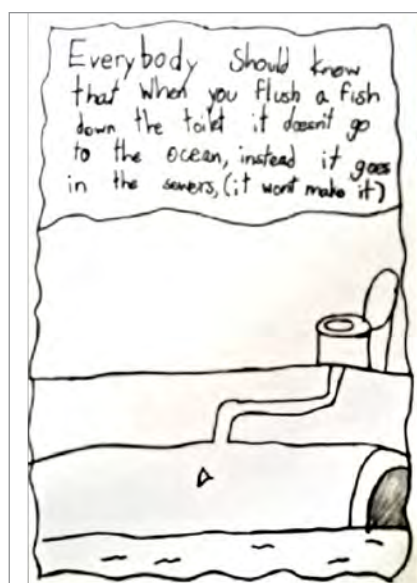 Everybody should know
that when you flush a fish
down the toilet it doesn't go
to the ocean, instead it goes
in the sewers, (it wont make it)